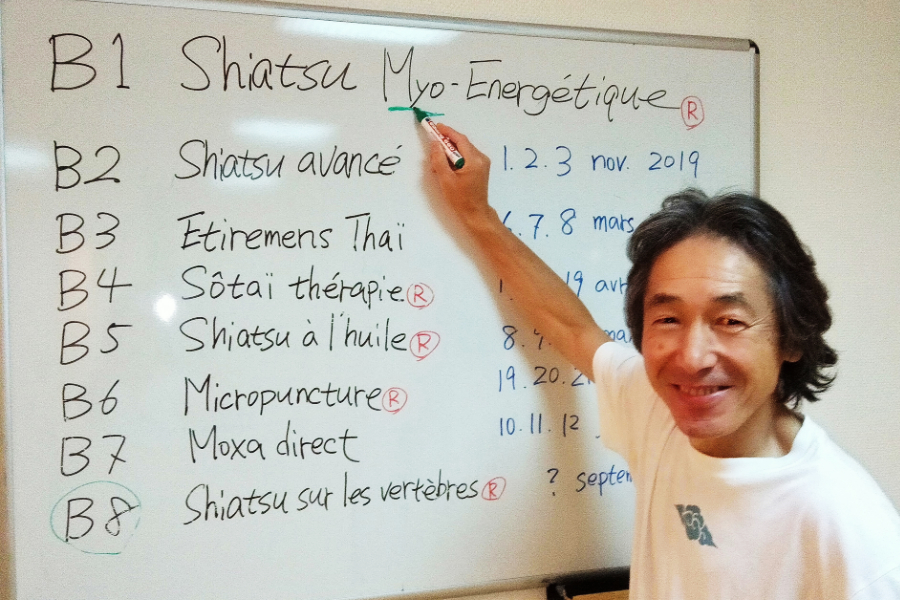 B1 Shiatsu Myo-Energétique ®
B2 Shiatsu avancé 1.2.3 nov. 2019
B3 Etiremens Thaï 7.8 mars
B4 Sôtaï thérapie ® 1. 19 avr
B5 Shiatsu à l'huile ® 8.
B6 Micropuncture ® 19.20.
B7 Moxa direct 10.11.12
B8 Shiatsu sur les vertèbres ® ? septem